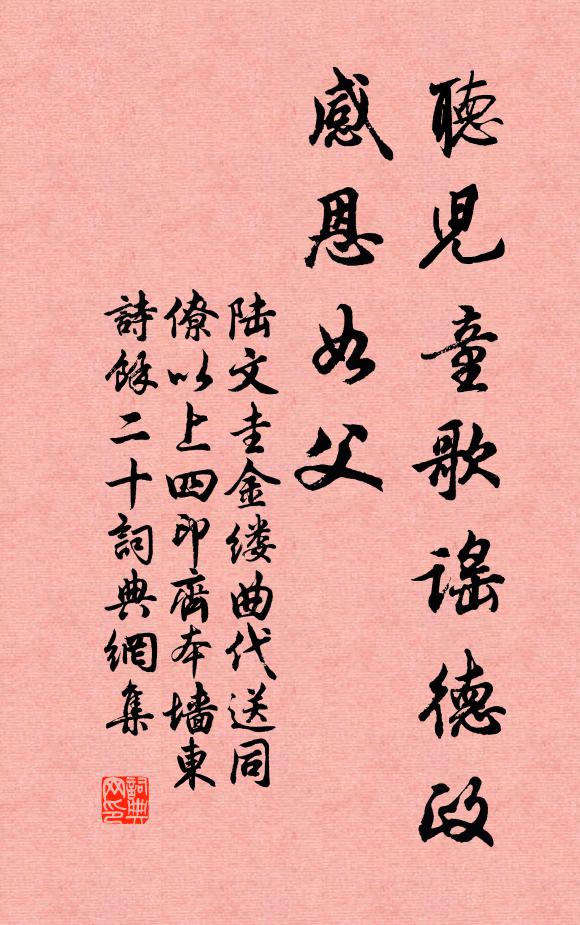 聽児童歌謠德政
感恩如父
陆文圭金缕曲代送同
僚以上四印齋本墻東
詩餘二十詞典網集
詞典网印